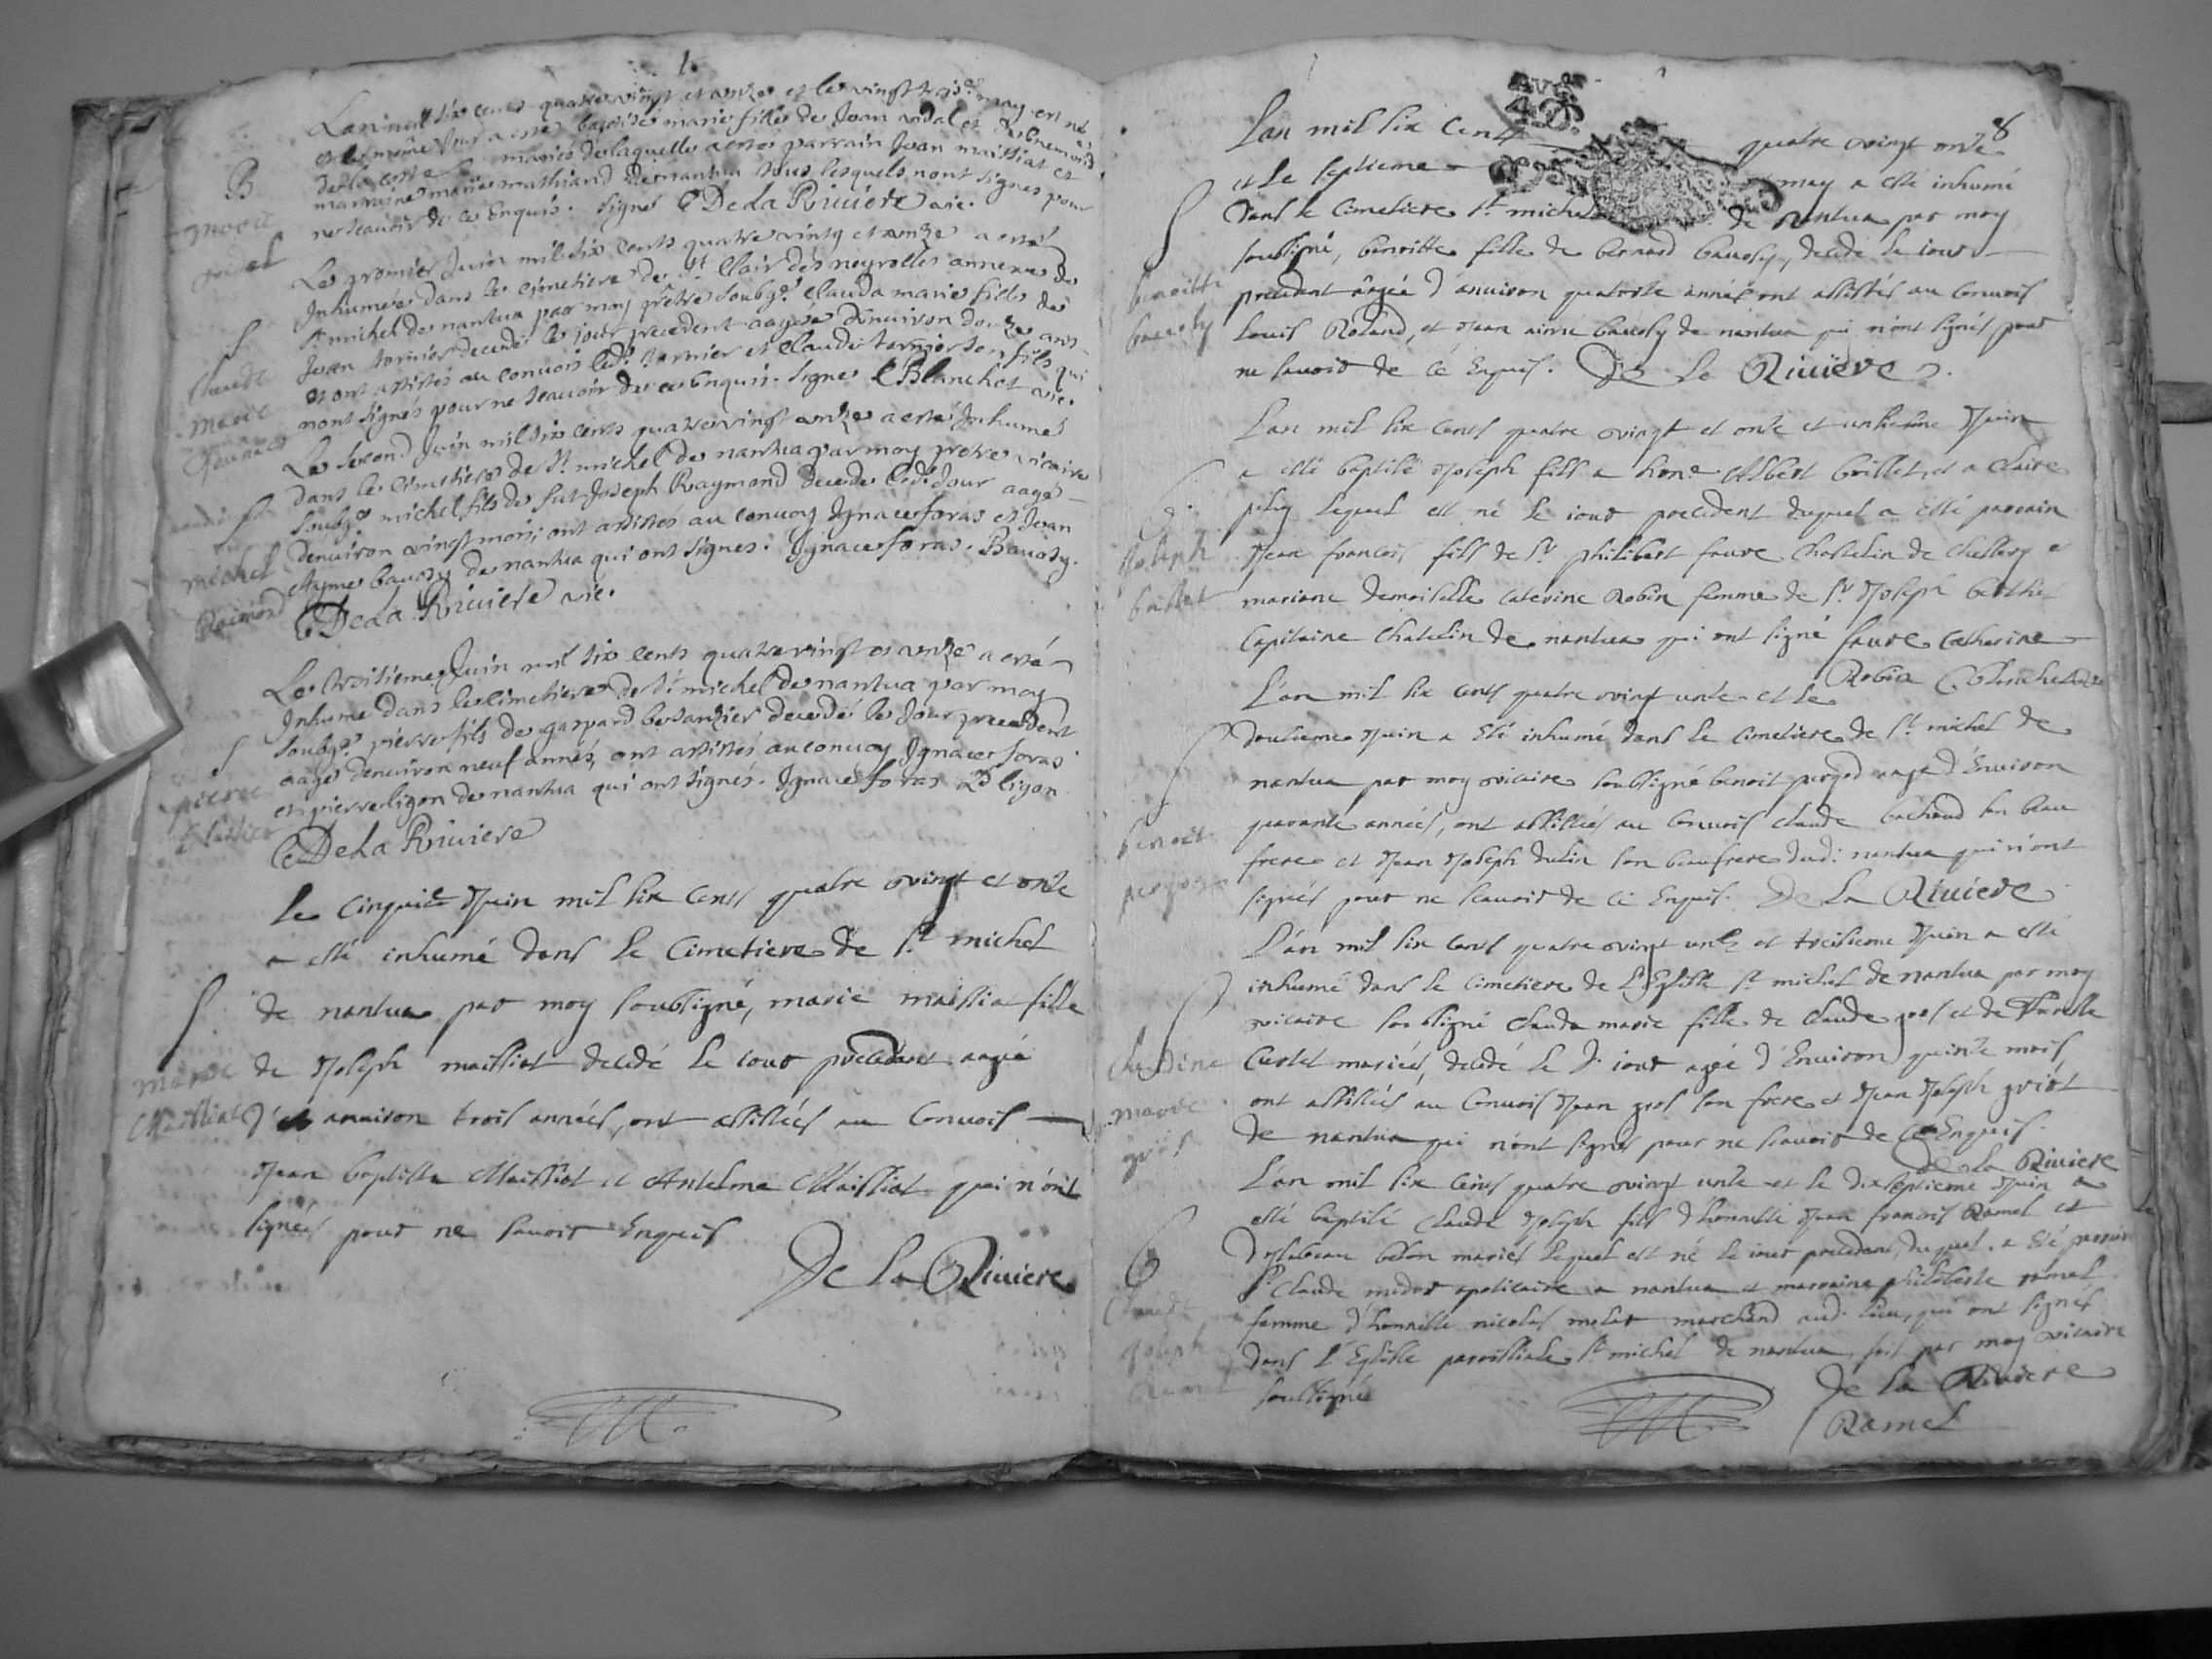 1.
L'an mil six cents quatre vingt et onze et le vingt trois.e may est né
et le même jour a esté baptisé marie fille de Jean vidal et
de la coste mariés de laquelle a estée parrain Jean maissiat et
marraine marie mathiand de nantua tous lesquels nont signes pour
ne scauoir de ce Enquis. Signes C De La Riuiere vic.
B
marie
vidal
Le premier Juin mil six cents quatre vingts et onze a esté
Inhumée dans le cimetiere de St Clair des neyrolles annexe de
St michel de nantua par moy prêtre soubg.é Clauda marie fille de
Jean tornier decedée le jour precedent aagée d'enuiron douze ans
et ont assistés au conuois led.t tornier et Claude tornier son fils qui
nont signés pour ne scauoir de ce Enquis. Signes C Blanchet vic.
S
Claude
marie
Le second Juin mil six cents quatre vingt onze a esté Inhumé
dans le cimetiere de St michel de nantua par moy prêtre vicaire
soubg.é michel fils de fut Joseph Raymond decedé led.t Jour aagé
d'enuiron vingt mois, ont assistés au conuoy Ignace foras et Jean
Ayme bauozy de nantua qui ont signes. Ignace foras. Bauozy.
C De La Riuiere vic.
S
michel
Raimond
Le troisieme Juin mil six cents quatre vingt et onze a esté
Inhumé dans le cimetiere de St michel de nantua par moy
soubg.é pierre fils de gaspard besanzier decedé le Jour precedent
aagé d'enuiron neuf année, ont assistés au conuoy Ignace foras
et pierre ligon de nantua qui ont signés. Ignace foras P ligon
C De La Riuiere
S
pierre
Le cinquie juin mil six cents quatre vingt et onze
a esté inhumé dans le cimetiere de St michel
de nantua par moy soubsigné, marie maissia fille
de joseph maissiat decedé le iour precedant aagée
d'et anuiron trois années, ont assistées au conuois
jean baptiste Maissiat et Antelme Maissiat qui n'ont
signés pour ne sauoir Enquis
De La Riuiere
S
marie
Maissiat
8
L'an mil six cents quatre vingt onze
et le septieme may a esté inhumé
dans le cimetiere St michel de nantua par moy
soubsigné, benoitte fille de bernard bauosy, decede le iour
precedant aagée d'anuiron quatorze année ont assistés au conuois
Louis Roland, et jean aime bauosy de nantua qui n'ont signés pour
ne sauoir de ce Enquis. De La Riuiere
S
benoitte
bauosy
L'an mil six cents quatre vingt et onze et unsiesme juin
a esté baptisé joseph fils a hon.e Albert baillet, et a claire
lequel est né le iour precedent duquel a esté parrain
jean francois fils de Sr philibert faure chastelin de
mariane demoiselle caterine Robin femme de Sr joseph
capitaine chatelin de nantua qui ont signé faure catherine
Robin C Blanchet
joseph
baillet
L'an mil six cents quatre vingt unze et le
douzieme juin a esté inhumé dans le cimetiere de St michel de
nantua par moy vicaire soubsigné benoit aagé d'Enuiron
quarante années, ont assistées au conuois claude bachoud son beau
frere et jean joseph dulin son beaufrere dud: nantua qui n'ont
signés pour ne scauoir de ce Enquis. De La Riuiere
S
benoit
L'an mil six cents quatre vingt unze et treizieme juin a esté
inhumé dans le cimetiere de L'Eglise St michel de nantua par moy
vicaire soubsigné clauda marie fille de claude gros et de
mariés, decedé le d. iour agée d'Enuiron quinze mois,
ont assistées au conuois jean gros son frere et jean joseph
de nantua qui n'ont signes pour ne scauoir de ce Enquis.
De la Riuiere
S
claudine
marie
L'an mil six cents quatre vingt unze et le dixseptieme juin a
esté baptisé claude joseph fils d'honneste jean francois Ramel et
d'ysabeau mariés lequel est né le iour precedent, duquel a esté parrain
Sr Claude apoticaire a nantua et marraine philiberte ramel
femme d'honneste nicolas marchand aud. lieu, qui ont signés
dans L'Eglise parroissiale St michel de nantua, fait par moy vicaire
soubsigné De la Riuiere
Ramel
claude
joseph
Ramel